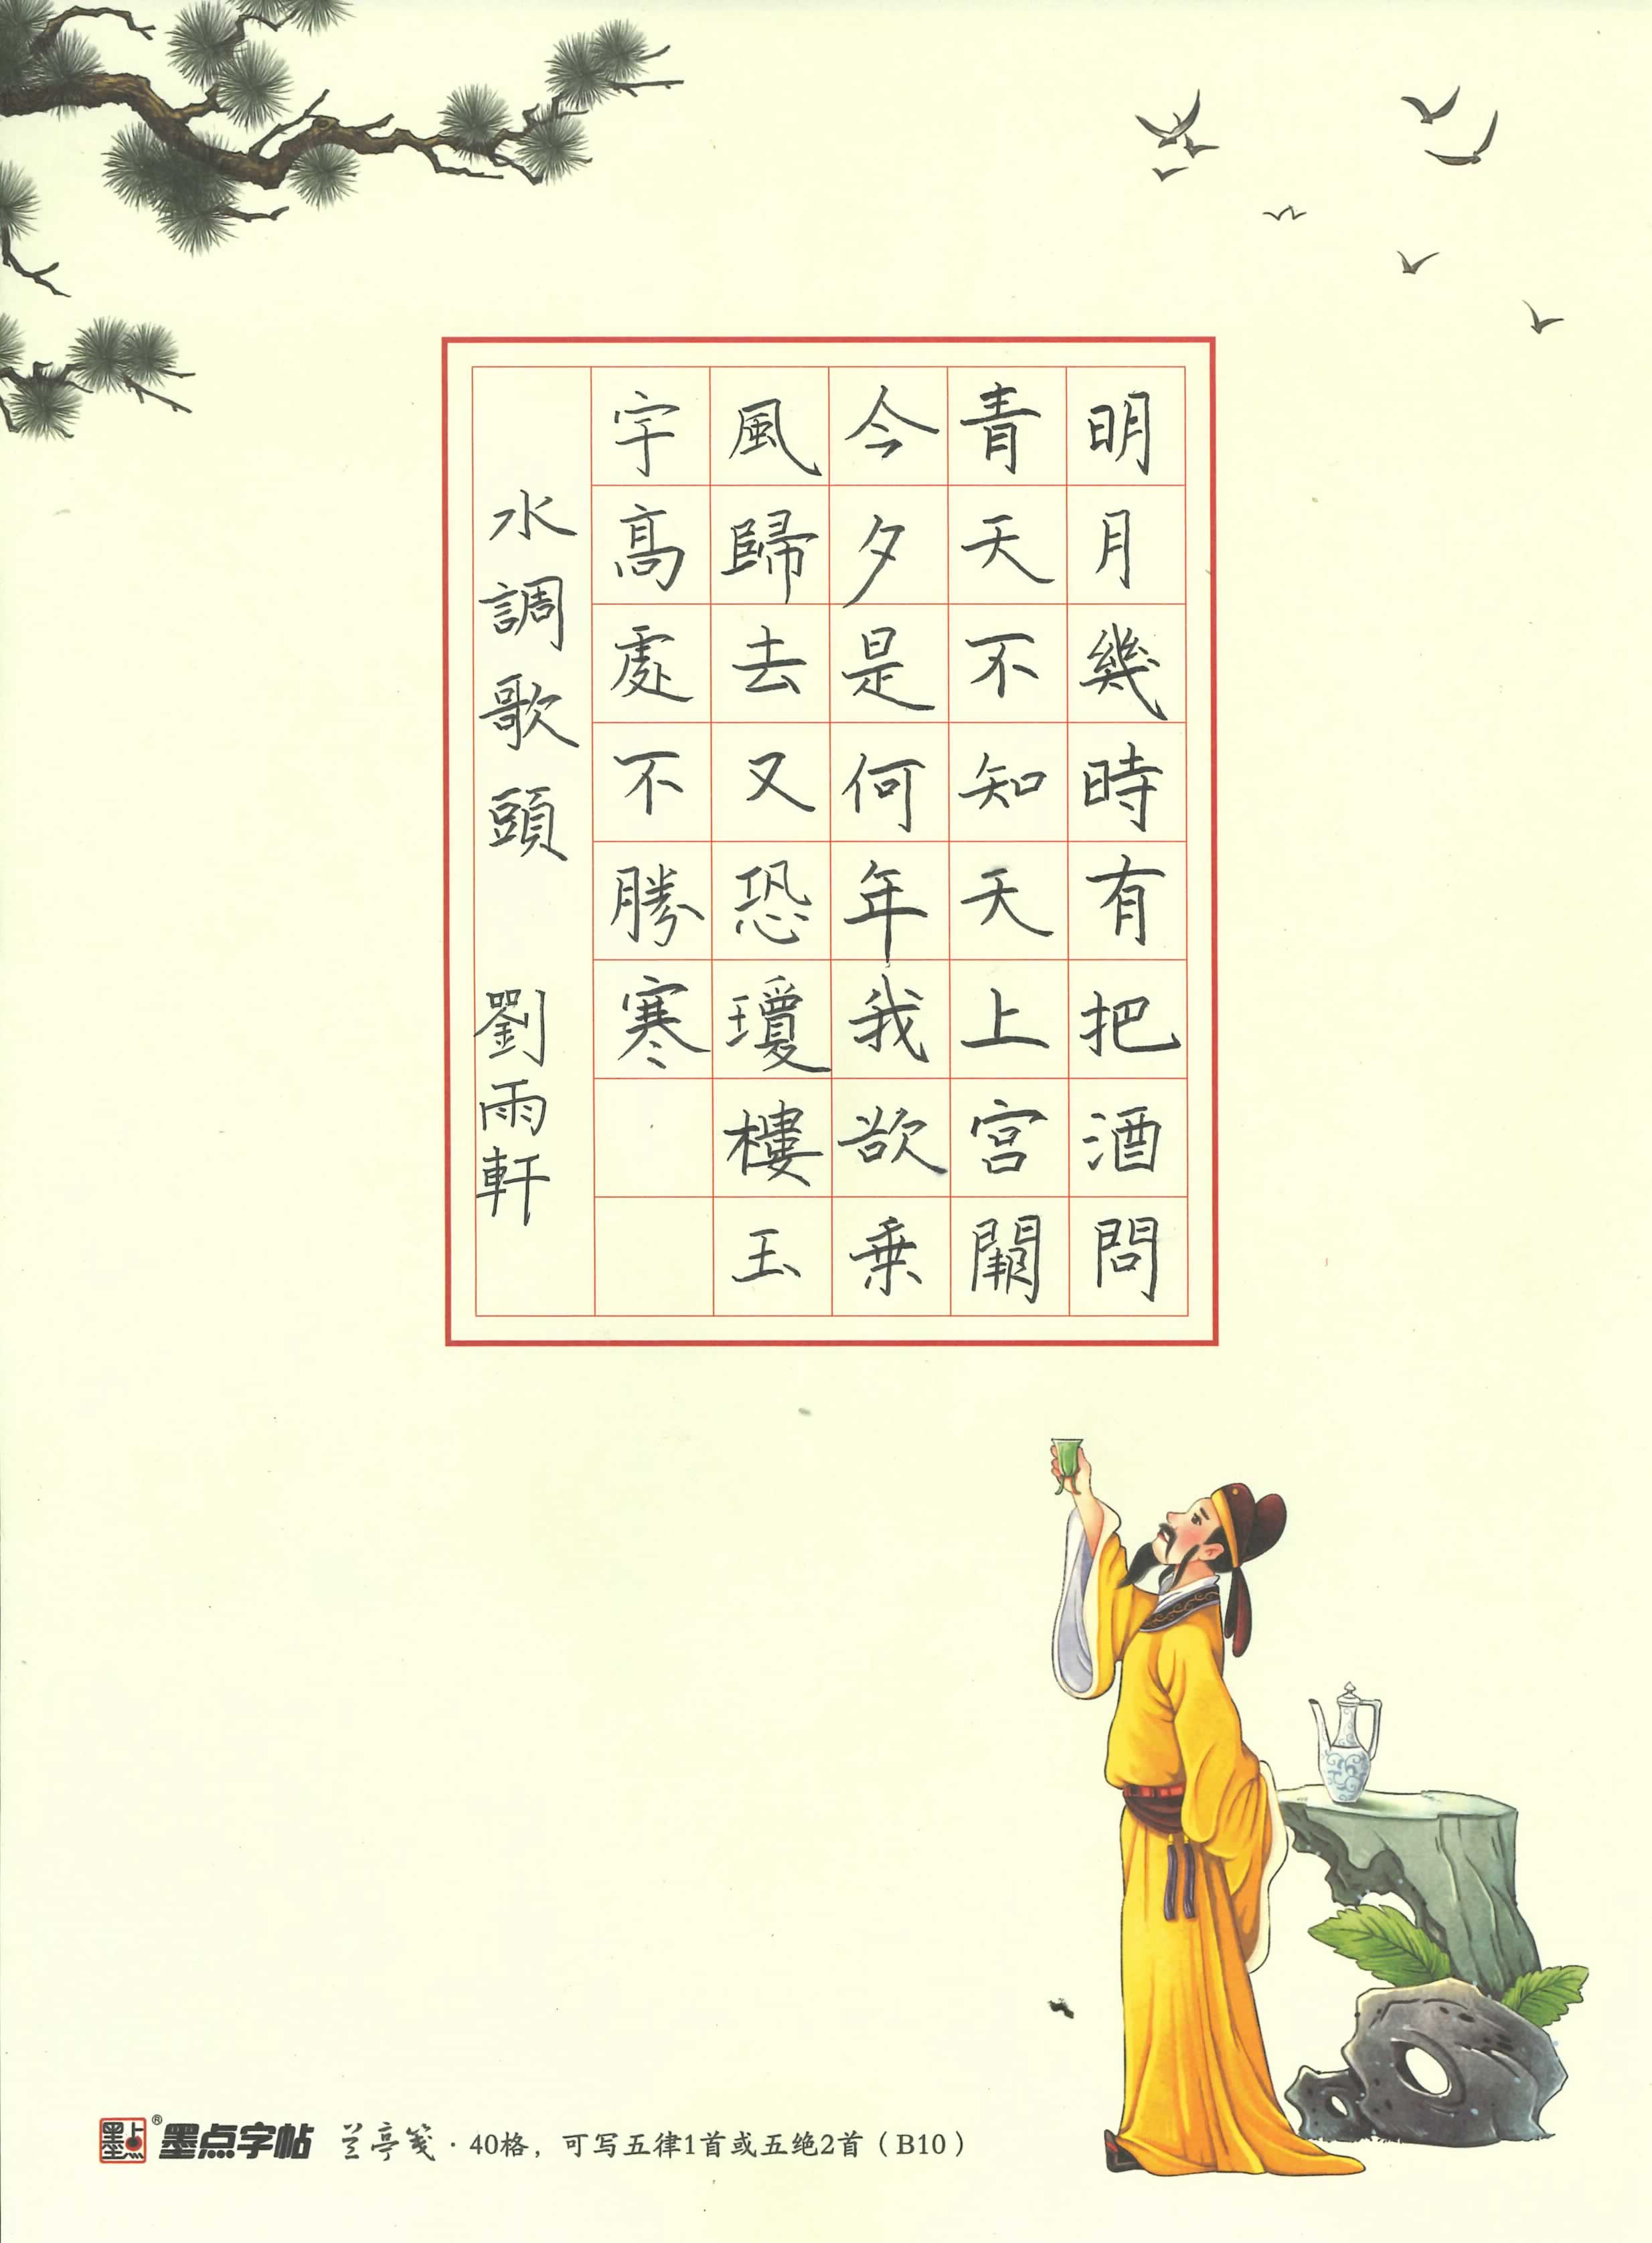 明月幾時有把酒問
青天不知天上宫闕
今夕是何年我欲乗
風歸去又恐瓊樓玉
宇髙處不勝寒
水調歌頭 劉雨軒
墨点字帖 兰亭笺·40格，可写五律1首或五绝2首（B10）